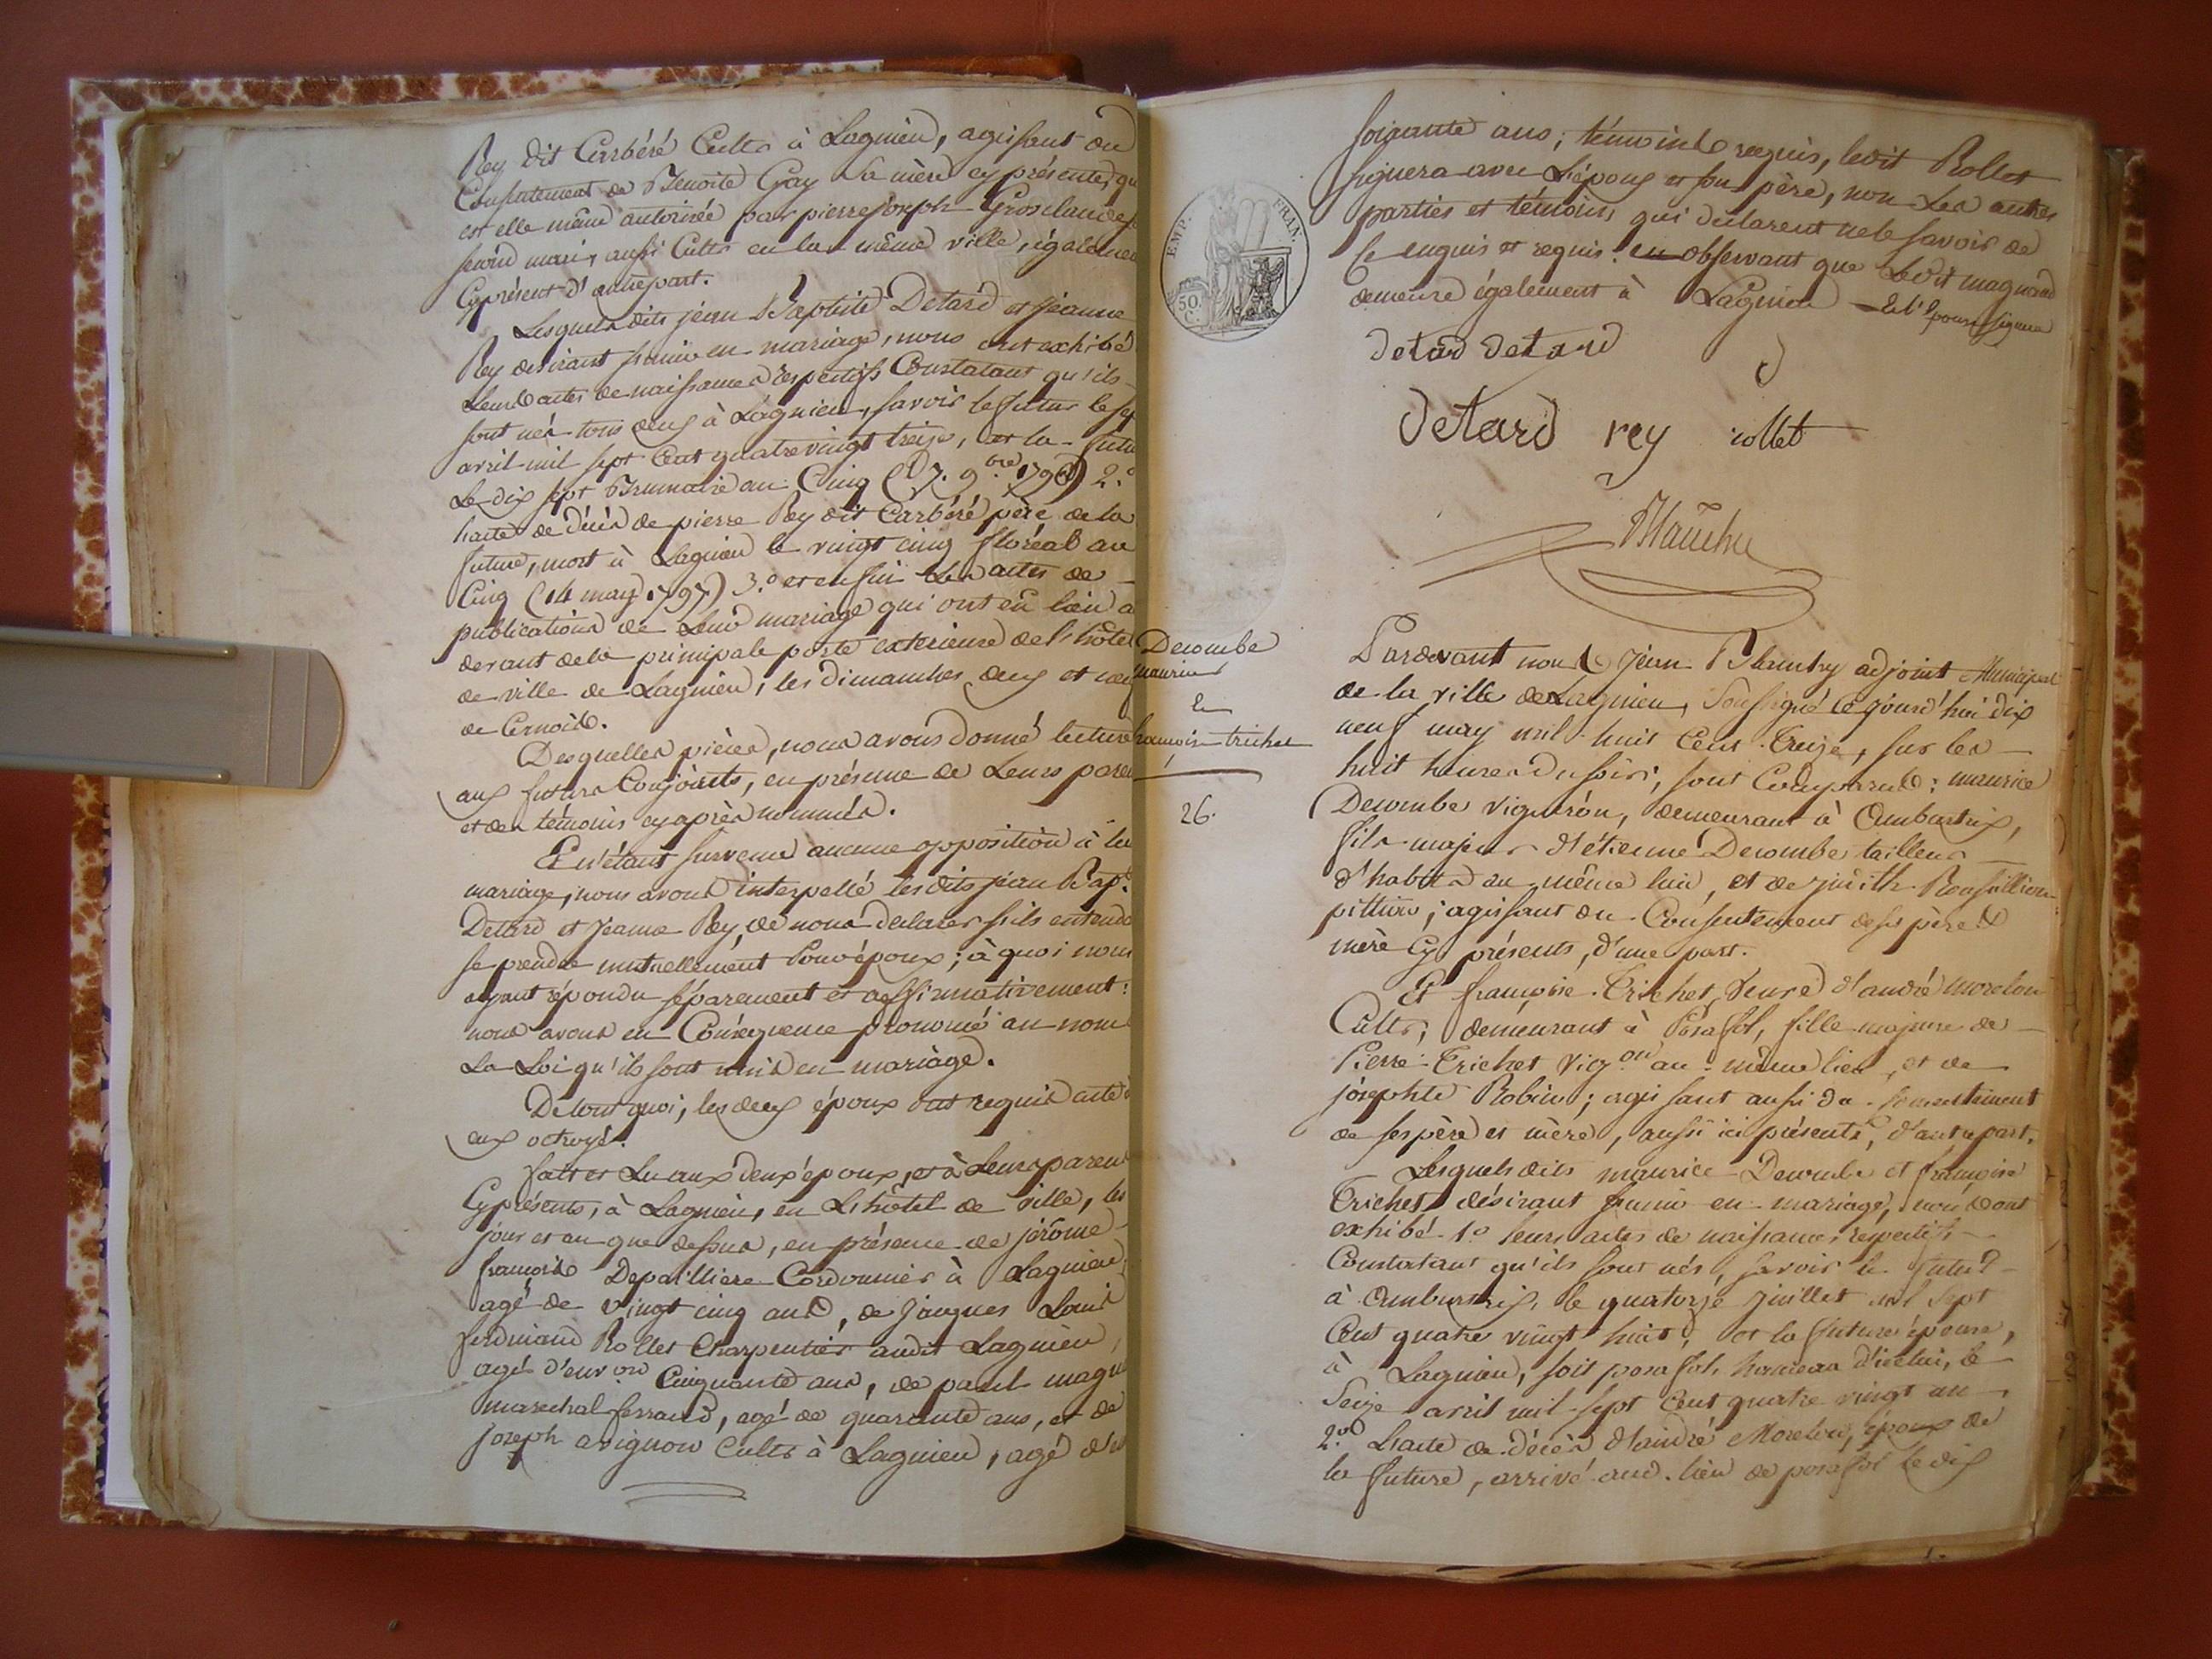 Rey dit Carbéré Cultr à Lagnieu, agissant du
Consentement de Benoite Gay sa mère cy présente, qui
est elle même autorisée par pierre joseph Grosclaude
second mari, aussi Cultr en la même ville, égalemen
Cy présent d'autre part.
Lesquels dits jean Baptiste Detard et Jeanne
Rey desirant s'unir en mariage, nous ont exhibé
Leurs actes de naissances respectifs Constatant qu'ils
sont nés tous deux à Lagnieu, savoir le futur le
avril mil sept Cent quatre vingt treize, et la futu
Le dix sept Brumaire an Cinq (7. 9.bre 1796) 2.o
l'acte de décès de pierre Rey dit Carbéré père de la
future, mort à Lagnieu le vingt cinq floréal an
Cinq (14 may 1797) 3.o et enfin Les actes de
publications de Leur mariage qui ont eu lieu a
devant de la principale porte exterieure de l'hôtel
de ville de Lagnieu, les dimanches deux et neuf
de Cemois.
Desquelles pièces, nous avons donné lecture
aux futurs Conjoints, en présence de Leurs paren
et des témoins cy après nommés.
En'étant survenue aucune opposition à leu
mariage, nous avons interpellé lesdits jean Bap.
Detard et Jeanne Rey, de nous déclarer s'ils entende
se prendre mutuellement Pour époux; à quoi nous
ayant répondu séparement et affirmativement:
nous avons en Conséquence prononcé au nom
La Loi qu'ils sont unis en mariage.
De tout quoi, les deux époux ont requis acte à
eux octroyé.
fait et Lu aux deux époux, et à Leurs parens
Cy présents, à Lagnieu, en L'hôtel de ville, les
jour et an que dessus, en présence de jérôme
françois Depaillière Cordonnier à Lagnieu,
agé de vingt cinq ans, de jacques Louis
ferdinand Rollet Charpentier audit Lagnieu,
agé d'environ Cinquante ans, de paul magn
marechal ferrand, agé de quarante ans, et de
joseph avignon Cultr à Lagnieu, agé de
EMP. FRAN.
50 C.
soixante ans; témoins requis, ledit Rollet
signera avec L'époux et son père, non Les autres
parties et témoins, qui déclarent ne le savoir de
Ce enquis et requis. en observant que ledit magnand
demeure également à Lagnieu - Et l'épouse signera
detard detard
Detard rey rollet
Blanchy
Decombe
maurice
Et
françoise trichet
26.
Pardevant nous Jean Blanchy adjoint Municipal
de la ville de Lagnieu, Soussigné Cejourd'hui dix
neuf may mil huit Cent Treize, sur les
huit heures du soir, sont Comparus: maurice
Decombe vigneron, demeurant à Ambutrix,
fils majeur d'étienne Decombe tailleur
d'habits au même lieu, et de judith Roussillion
; agissant du Consentement de ses père &
mère Cy présents, d'une part.
Et françoise Trichet, Veuve d'andré morelon
Cultr, demeurant à Posafol, fille majeure de
Pierre Trichet vig.on au même lieu, et de
josephte Robin; agissant aussi du Consentement
de ses père et mère, aussi ici présents, d'autre part.
Lesquels dits maurice Decombe et françoise
Trichet, désirant s'unir en mariage, nous ont
exhibé 1.o leurs actes de naissances respectifs
Constatant qu'ils sont nés, savoir le futur
à Ambutrix, le quatorze juillet mil Sept
Cent quatre vingt huit, et la future épouse,
à Lagnieu, soit posafol, hameau d'icelui, le
Seize avril mil sept Cent quatre vingt un
2.o L'acte de décès d'andré Morelon, époux de
la future, arrivé aud. lieu de posafol le dix